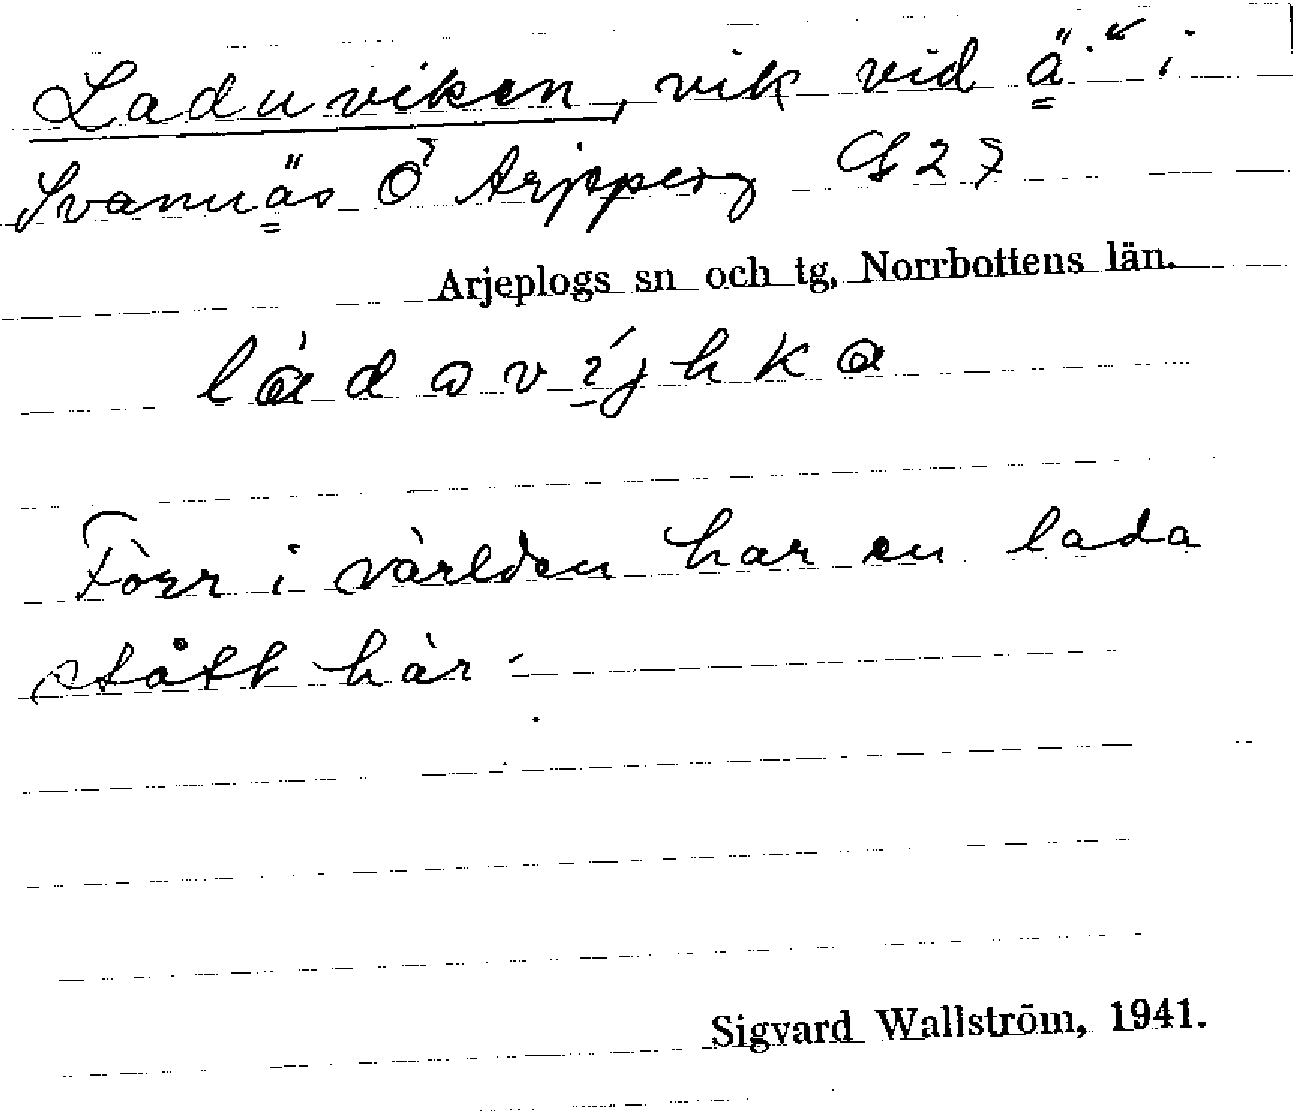 Laduviken, vik vid ä. i
Svannäs Ö Arjepperg G 27
Arjeplogs sn och tg, Norrbottens län.
Förr i världen har en lada
stått här.
Sigvard Wallström, 1941.